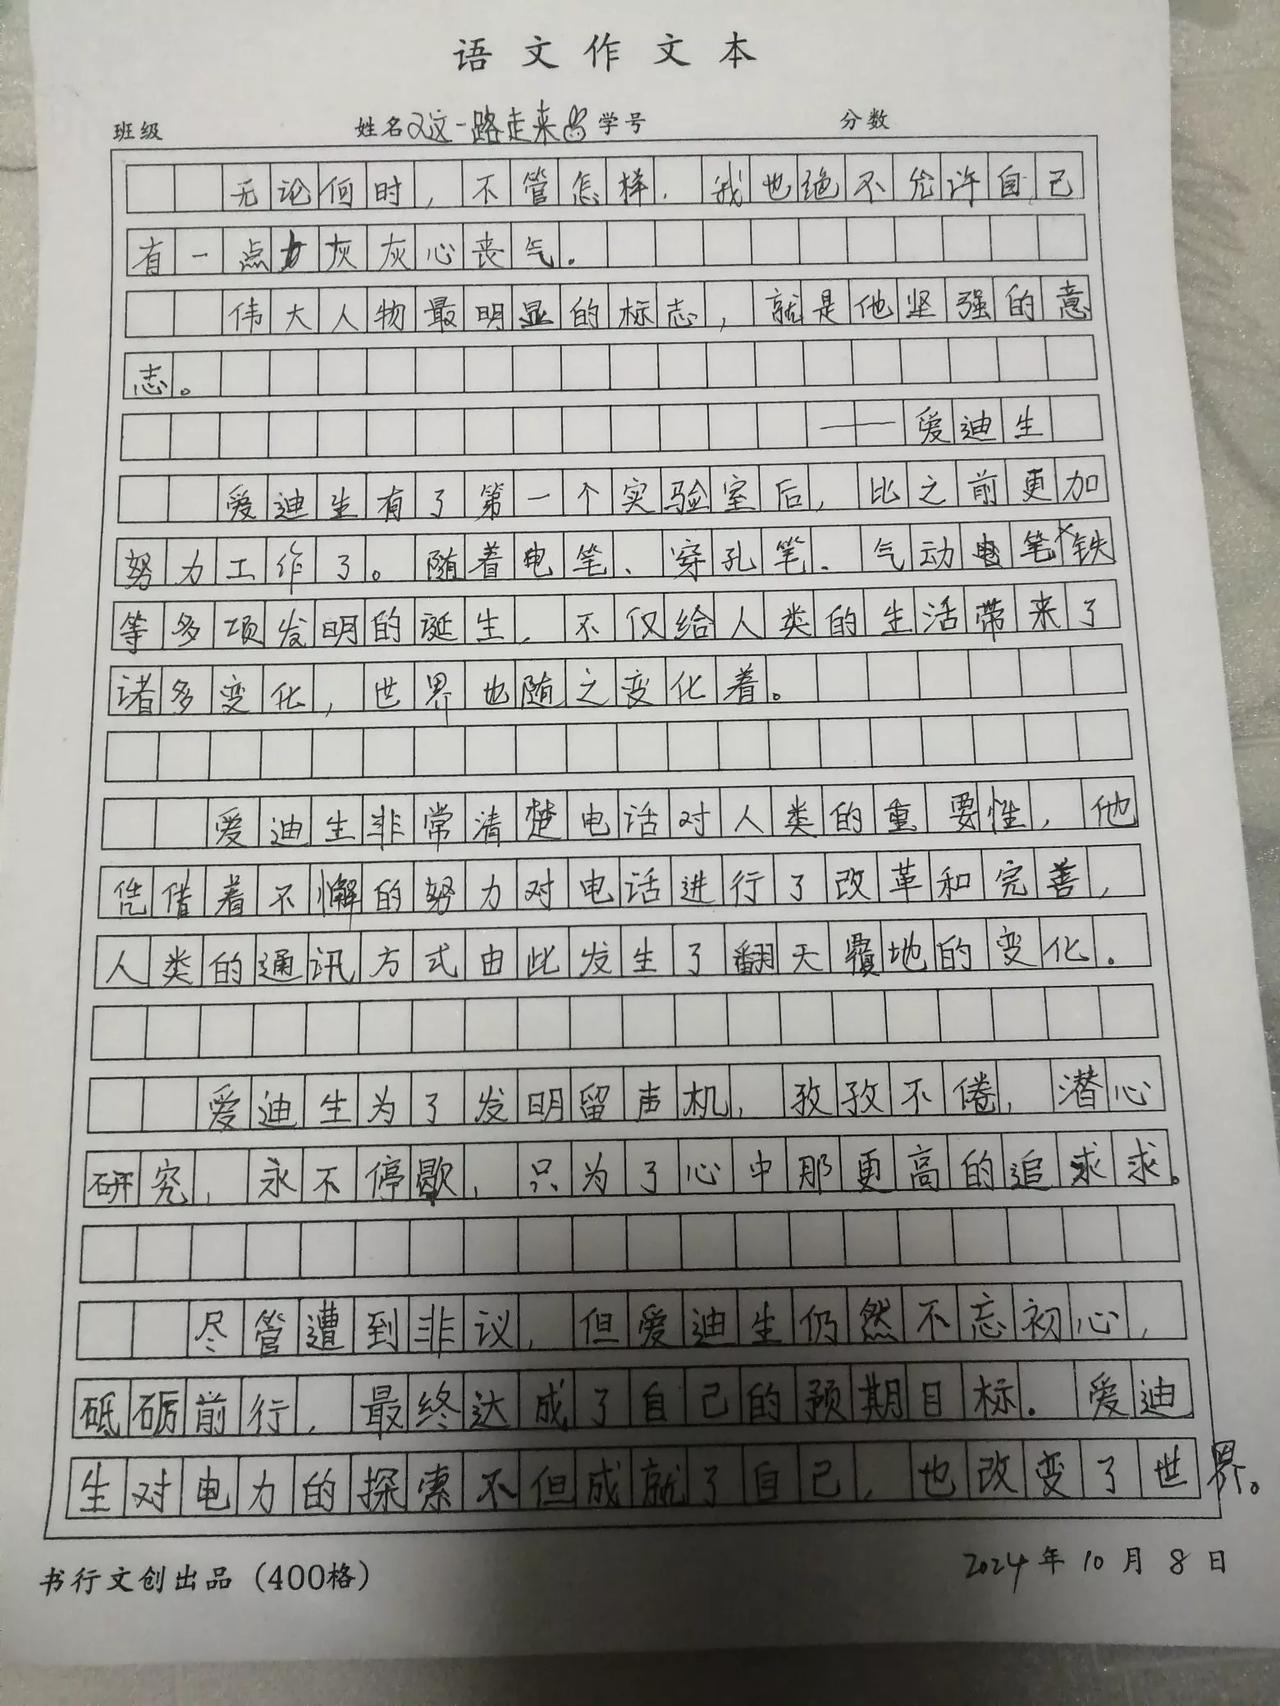 语文作文本
班级 姓名又这一路走来 学号 分数
无论何时,不管怎样,我也绝不允许自己
有一点灰灰心丧气。
伟大人物最明显的标志,就是他坚强的意
志。
——爱迪生
爱迪生有了第一个实验室后,比之前更加
努力工作了。随着电笔、穿孔笔、气动笔铁
等多项发明的诞生,不仅给人类的生活带来了
诸多变化,世界也随之变化着。
爱迪生非常清楚电话对人类的重要性,他
凭借着不懈的努力对电话进行了改革和完善,
人类的通讯方式由此发生了翻天覆地的变化。
爱迪生为了发明留声机,孜孜不倦,潜心
研究,永不停歇,只为了心中那更高的追求求。
尽管遭到非议,但爱迪生仍然不忘初心,
砥砺前行,最终达成了自己的预期目标。爱迪
生对电力的探索不但成就了自己,也改变了世界。
书行文创出品(400格) 2024年10月8日